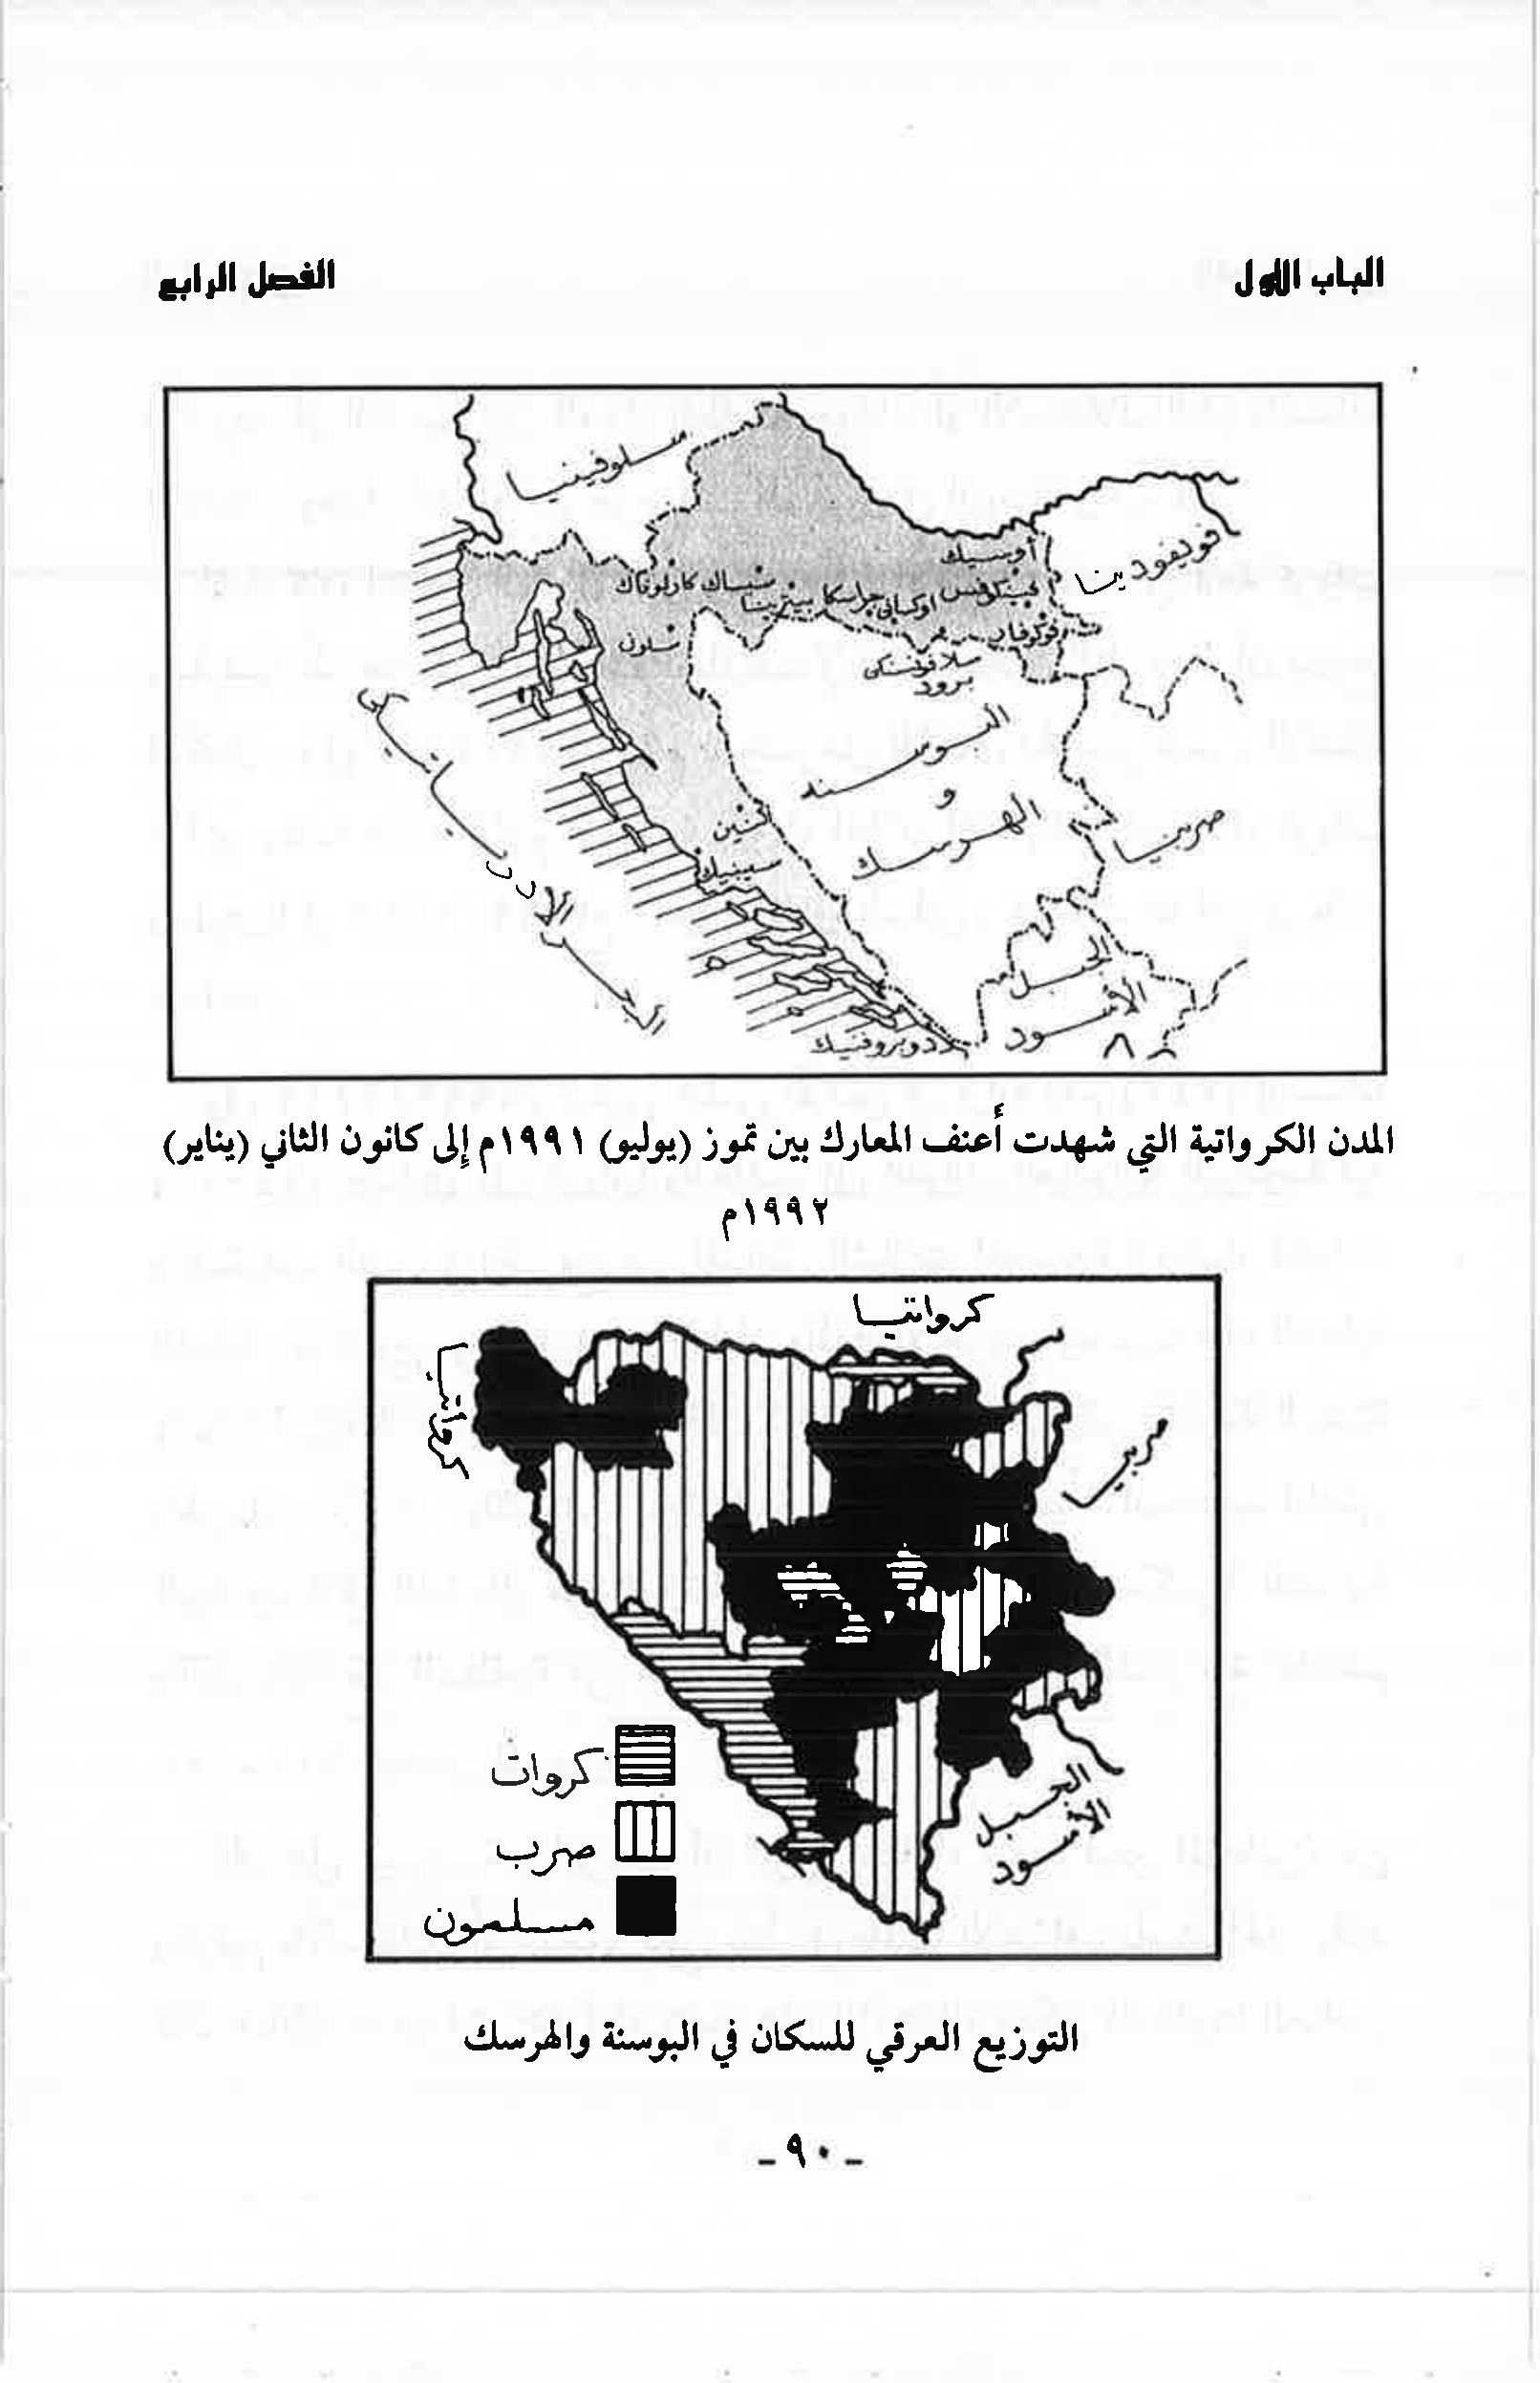 الباب الاول
الفصل الرابع
سلوفينيا
فويفودينا
أوسيك
فينكوفتس
سيساك كارلوفاك
بيترينيا
فوكوفار
سلون
سلافونسكي
برود
البوسنه
و
الهرسك
صربيا
كنين
سيبنيك
البحر الادرياتيكي
الجبل
الأسود
دوبروفنيك
المدن الكرواتية التي شهدت أعنف المعارك بين تموز (يوليو) ١٩٩١م إلى كانون الثاني (يناير)
١٩٩٢م
كرواتيا
كرواتيا
صربيا
الجبل
الأسود
كروات
صرب
مسلمون
التوزيع العرقي للسكان في البوسنة والهرسك
- ٩٠ -